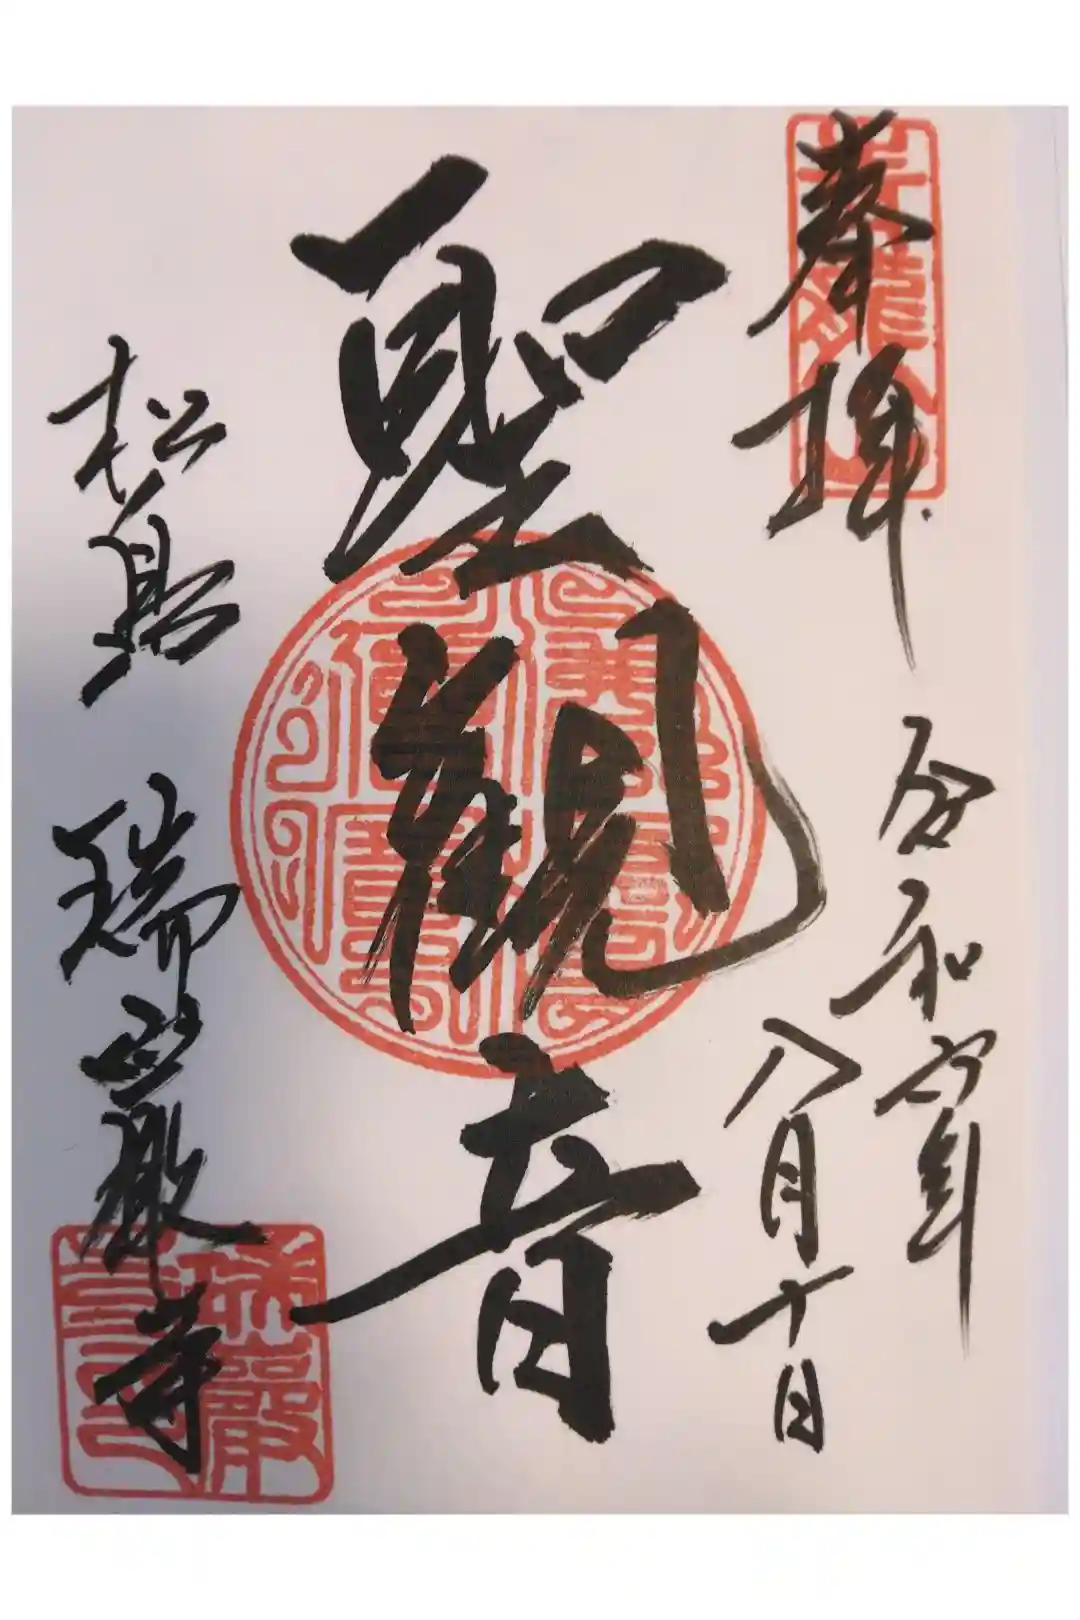 奉拝
令和六年
八月十日
聖観音
松島 瑞巌寺
瑞巌